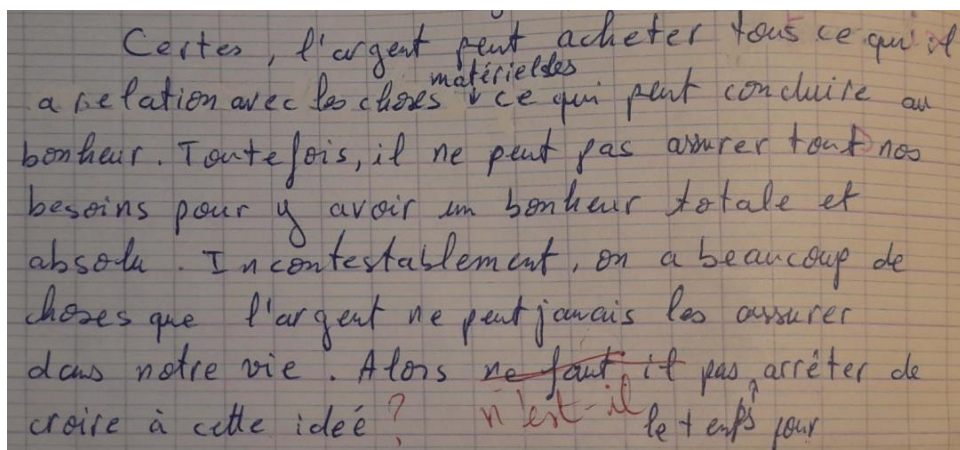 Certes, l'argent peut acheter tous ce qu'il
matérielles
a relation avec les choses ce qui peut conduire au
bonheur. Toutefois, il ne peut pas assurer tout nos
besoins pour y avoir un bonheur totale et
absolu. Incontestablement, on a beaucoup de
choses que l'argent ne peut jamais les assurer
dans notre vie. Alors ne faut il pas arrêter de
croire à cette ideé ? n'est-il le temps pour